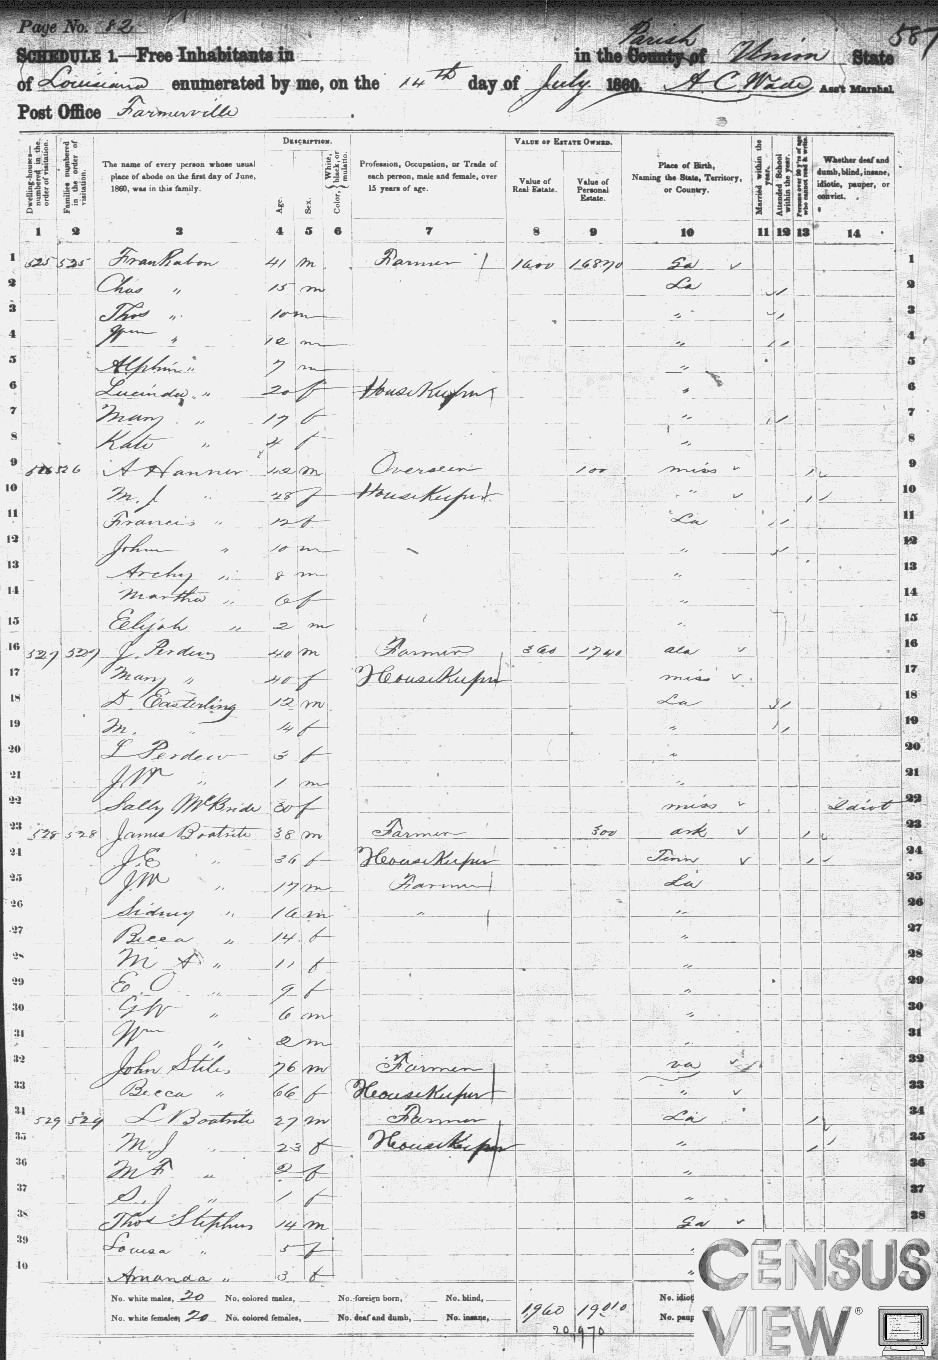 Page No. 82
587
SCHEDULE 1.—Free Inhabitants in in the County of Parish Union State
of Louisiana enumerated by me, on the 14th day of July 1860. A C Wade Ass't Marshal.
Post Office Farmerville
Dwelling-houses—numbered in the order of visitation.
Families numbered in the order of visitation.
The name of every person whose usual place of abode on the first day of June, 1860, was in this family.
DESCRIPTION.
Age.
Sex.
Color, { White, black, or mulatto.
Profession, Occupation, or Trade of each person, male and female, over 15 years of age.
VALUE OF ESTATE OWNED.
Value of Real Estate.
Value of Personal Estate.
Place of Birth, Naming the State, Territory, or Country.
Married within the year.
Attended School within the year.
Persons over 20 y'rs of age who cannot read & write.
Whether deaf and dumb, blind, insane, idiotic, pauper, or convict.
1 2 3 4 5 6 7 8 9 10 11 12 13 14
1 525 525 41 m Farmer 1600 16870 Ga 1
2 Chas " 15 m La 2
3 Thos " 10 m " 3
4 Wm " 12 m " 4
5 " 7 m " 5
6 Lucinda " 20 f House Keeper " 6
7 Mary " 17 f " 7
8 Kate " 4 f " 8
9 526 526 A Hanner 42 m Overseer 100 miss 9
10 M. J " 28 f House Keeper " 10
11 Francis " 12 f La 11
12 John " 10 m " 12
13 Archy " 8 m " 13
14 Martha " 6 f " 14
15 Elijah " 2 m " 15
16 527 527 J. Perdew 40 m Farmer 360 1740 ala 16
17 Mary " 40 f House Keeper miss 17
18 D. Easterling 12 m La 18
19 M. " f " 19
20 L Perdew 3 f " 20
21 J. W " 1 m " 21
22 Sally McBride 30 f miss Idiot 22
23 528 528 James Boatrite 38 m Farmer 300 ark 23
24 J. E " 36 f House Keeper Tenn 24
25 J. W " 17 m Farmer La 25
26 Sidney " 16 m " " 26
27 Becca " 14 f " 27
28 M A " 11 f " 28
29 E. O " 9 f " 29
30 G W " 6 m " 30
31 Wm " 2 m " 31
32 John Stiles 76 m Farmer va 32
33 Becca " 66 f House Keeper " 33
34 529 529 L Boatrite 27 m Farmer La 34
35 M. J " 23 f House Keeper " 35
36 M F " 2 f " 36
37 S. J " 1 f " 37
38 Thos Stephens 14 m Ga 38
39 Louisa " 5 f "
40 Amanda " 3 f "
No. white males, 20 No. colored males, No. foreign born, No. blind, No. idiot
No. white females, 20 No. colored females, No. deaf and dumb, No. insane, 1960 19010 No. paup
20,970
CENSUS
VIEW®